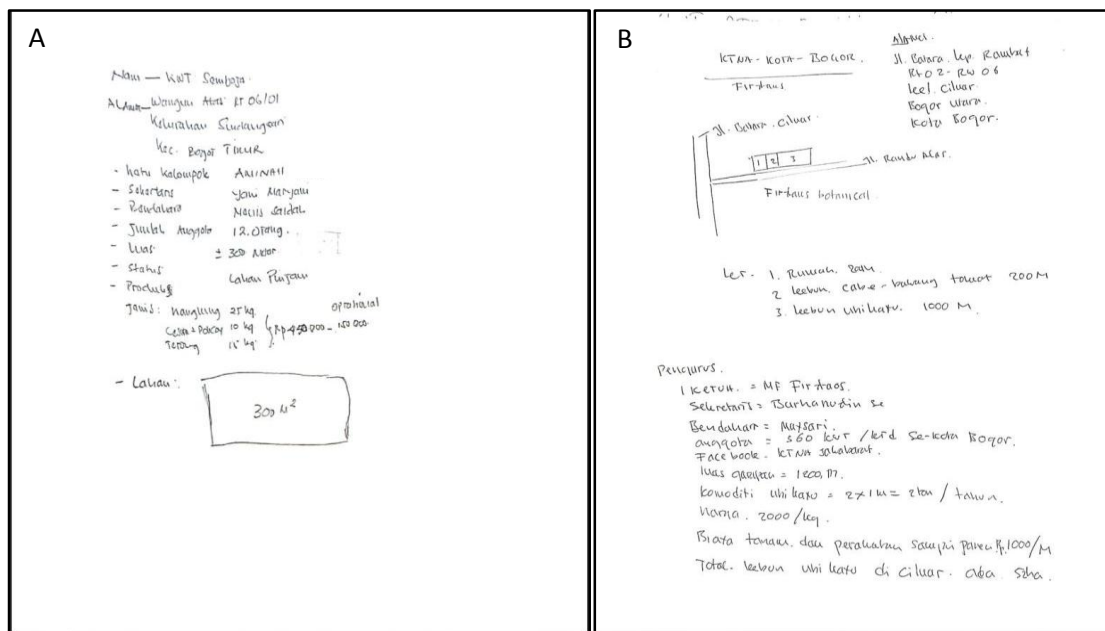 A
Nam — KWT Semboja
ALAmat — Wangun Atas RT 06/01
Kelurahan Sindangsari
Kec. Bogor TIMUR
- Ketu Kelompok AMINAH
- Sekertaris Yani Maryani
- Bendahara
- Jumlah Anggota 12 Orang.
- Luas ± 300 Meter
- Status Lahan Pinjam
- Produksi
Jenis: Kangkung 25 kg
Cesim + Pakcoy 10 kg Rp 450.000 - 150.000
Terong 15 kg
- Lahan:
300 M²
B
KTNA - KOTA - BOGOR.
Firdaus
Alamat.
Jl. Batara. kp. Rambut
Rt 02 - RW 06
kel. Ciluar
Bogor Utara.
Kota Bogor.
Jl. Batara. Ciluar.
1 2 3
Firdaus botanical.
ket. 1. Rumah.
2 kebun. cabe - bawang tomat 200 M
3. kebun ubi kayu. 1000 M.
Pengurus.
1 Ketua. = MF Firdaos.
Sekretaris = Burhanudin se
Bendahara = Maysari.
anggota = 360 kwt / ktd se-kota Bogor.
Facebook. KTNA
luas = 1200, M.
komoditi ubi kayu = 2 x 1 M = 2 ton / tahun.
Harga. 2000/kg.
Biaya tanam. dan perawatan sampai panen Rp. 1000/M
Total. kebun ubi kayu di Ciluar. ada. 5 ha.